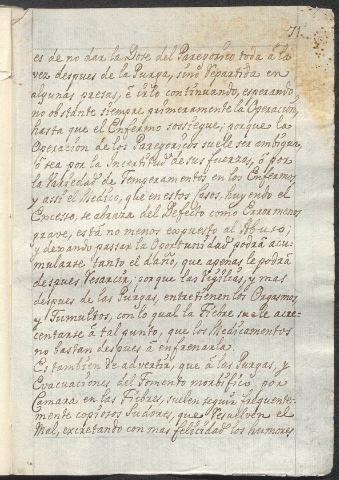 71
es de no dar la Dose del Paregorico toda á la
vez despues de la Purga, sinó repartida en
algunas presas, é irlo continuando, esperando
no obstante siempre primeramente la Operacion,
hasta que el Enfermo sossiegue; porque la
Operacion de los Paregoricos suele ser ambigua,
ó sea por la Incertitud de sus fuerzas, ó por
la Variedad de Temperamentos en los Enfermos,
y assi el Medico, que en estos casos, huyendo el
Excesso, se abraza del Defecto como Error menos
grave, está no menos expuesto al Abuso;
y dexando passar la Oportunidad podrá acu-
mularse tanto el daño, que apenas le podrá
despues resarcir; porque las Vigilias, y mas
despues de las Purgas, entretienen los Orgasmos,
y Tumultos, con lo qual la Fiebre suele acre-
centarse á tal punto, que los Medicamentos
no bastan despues á enfrenarla.
Es tambien de advertir, que á las Purgas, y
Evacuaciones del Fomento morbifico, por
Camara en las Fiebres, suelen seguir frequente-
mente copiosos Sudores, que resuelven el
Mal, excretando con mas felicidad los humores